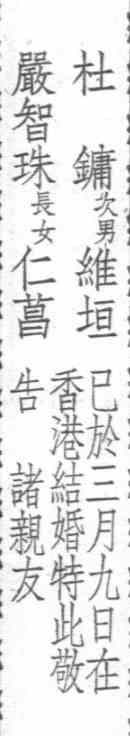 杜　鏞次男維垣
嚴智珠長女仁菖
已於三月九日在
香港結婚特此敬
告　諸親友